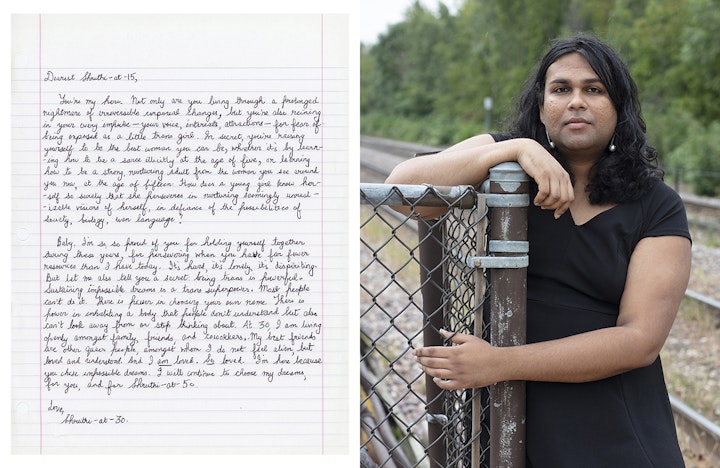 Dearest Shruthi-at-15,
You're my hero. Not only are you living through a prolonged
nightmare of irreversible unwanted changes, but you're also reining
in your every impulse — your voice, interests, attractions — for fear of
being exposed as a little trans girl. In secret, you're raising
yourself to be the best woman you can be, whether it's by learn-
ing how to tie a saree illicitly at the age of five, or learning
how to be a strong, nurturing adult from the women you see around
you now, at the age of fifteen. How does a young girl know her-
self so surely that she perseveres in nurturing seemingly unreal-
izable visions of herself, in defiance of the possibilities of
society, biology, even language?
Baby, I'm so, so proud of you for holding yourself together
during these years, for persevering when you have far fewer
resources than I have today. It's hard, it's lonely, it's dispiriting.
But let me also tell you a secret: being trans is powerful.
Sustaining impossible dreams is a trans superpower. Most people
can't do it. There is power in choosing your own name. There is
power in inhabiting a body that people don't understand but also
can't look away from or stop thinking about. At 30 I am living
openly amongst family, friends, and coworkers. My best friends
are other queer people, amongst whom I do not feel alien, but
loved and understood. And I am loved. So loved. I'm here because
you chose impossible dreams. I will continue to choose my dreams,
for you, and for Shruthi-at-50.
Love,
Shruthi-at-30.